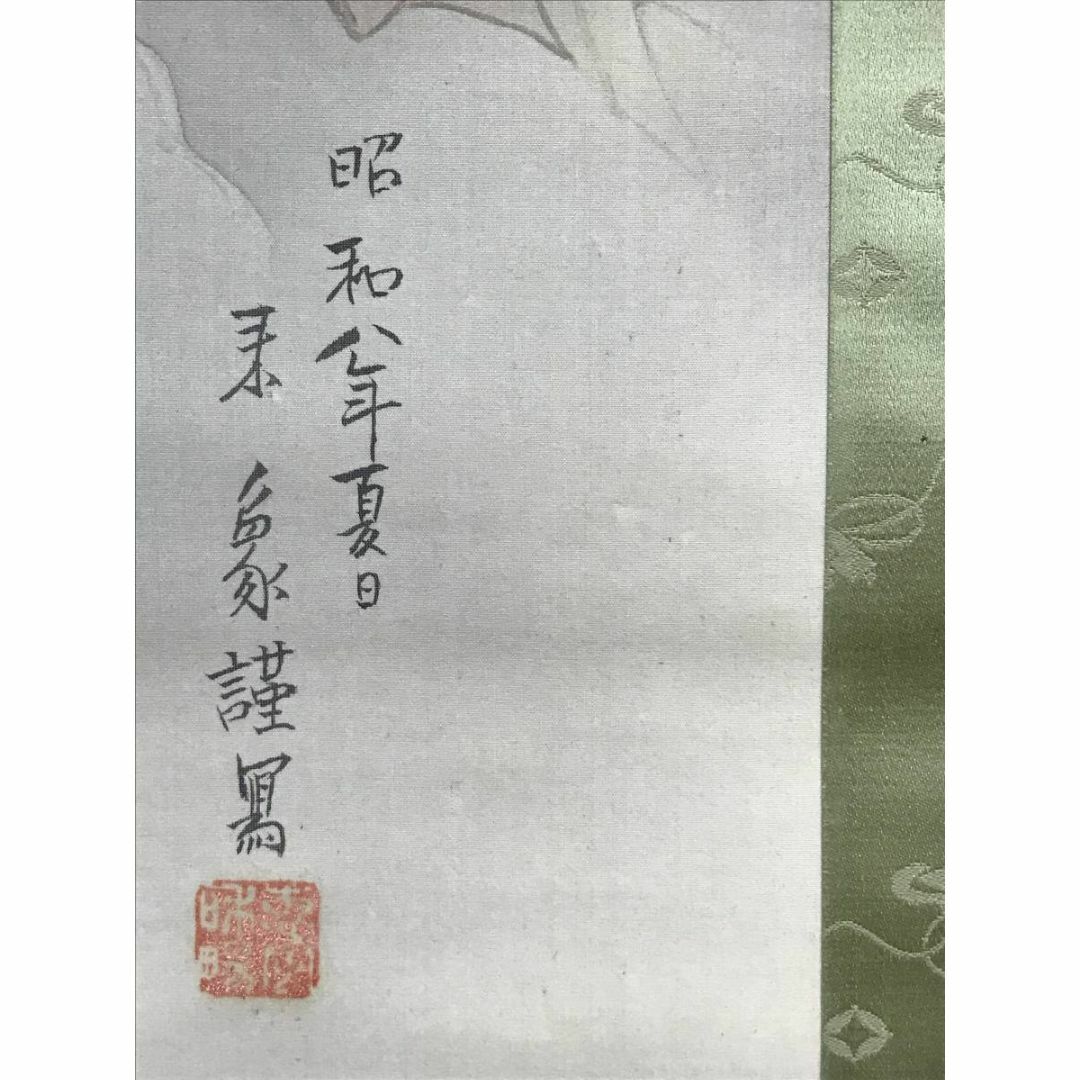 昭和八年夏日
象謹寫